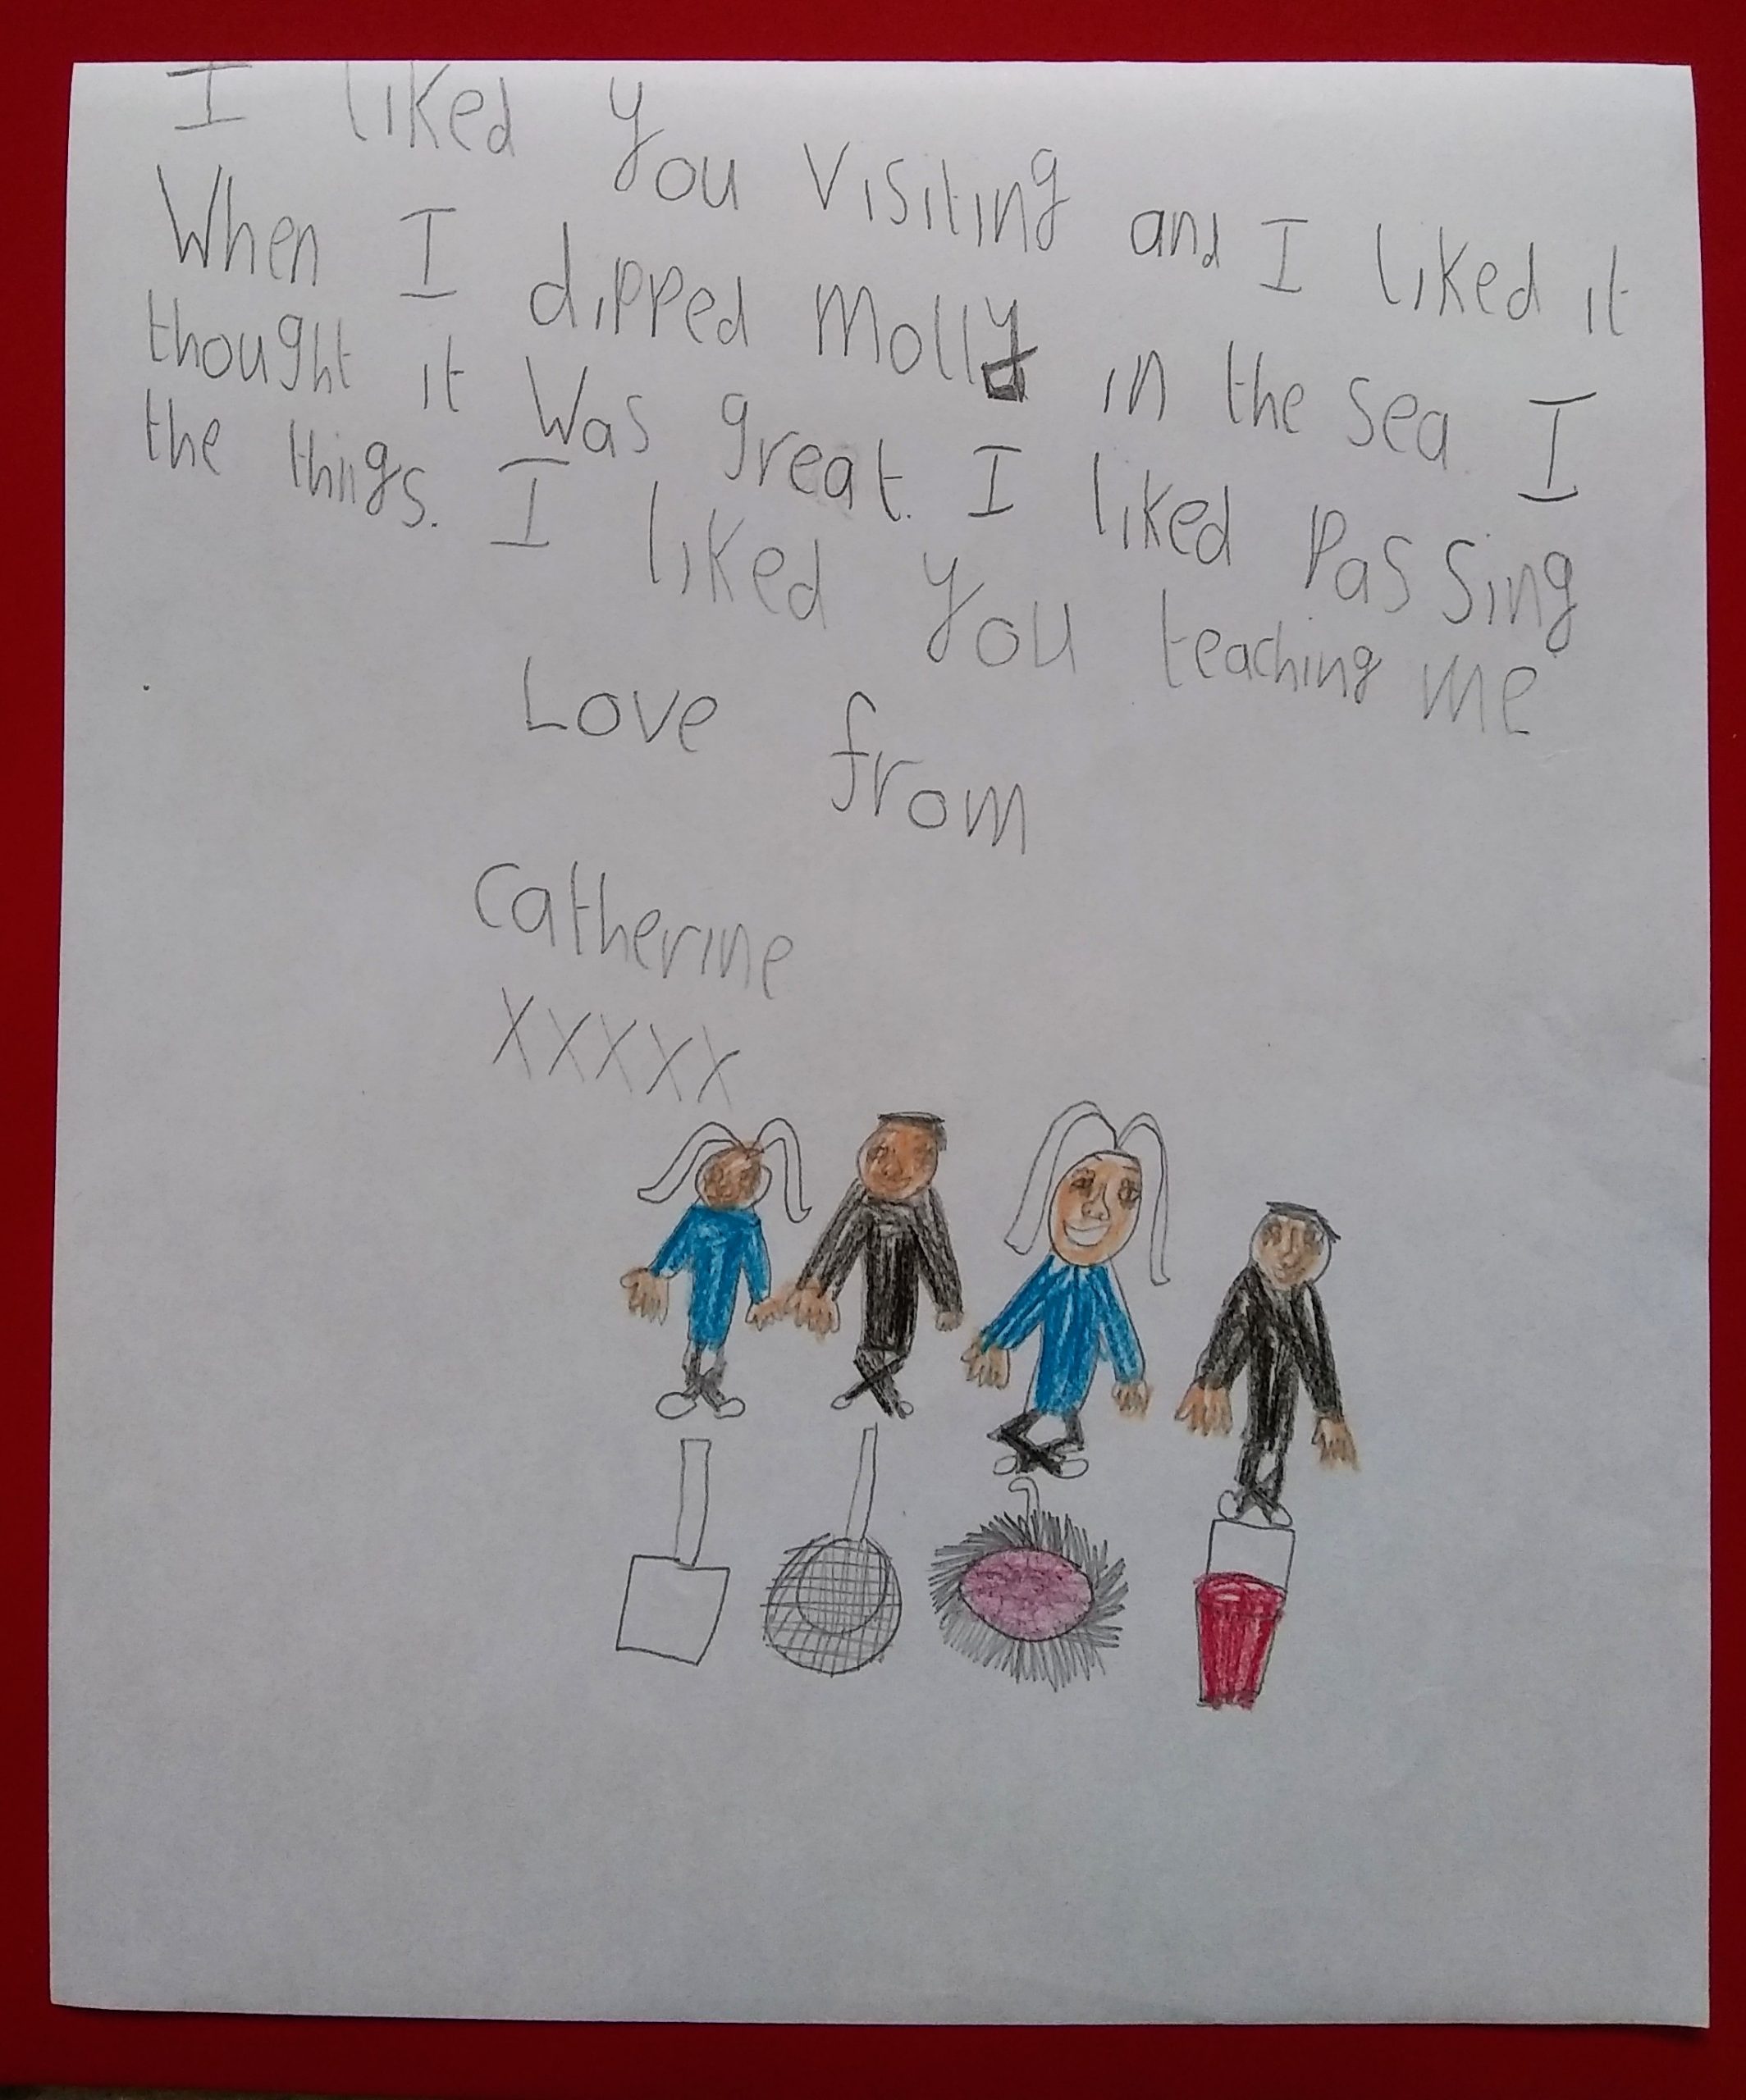 I liked you visiting and I liked it
When I dipped Molly in the sea I
thought it was great. I liked Passing
the things. I liked you teaching me
Love from
Catherine
XXXXX